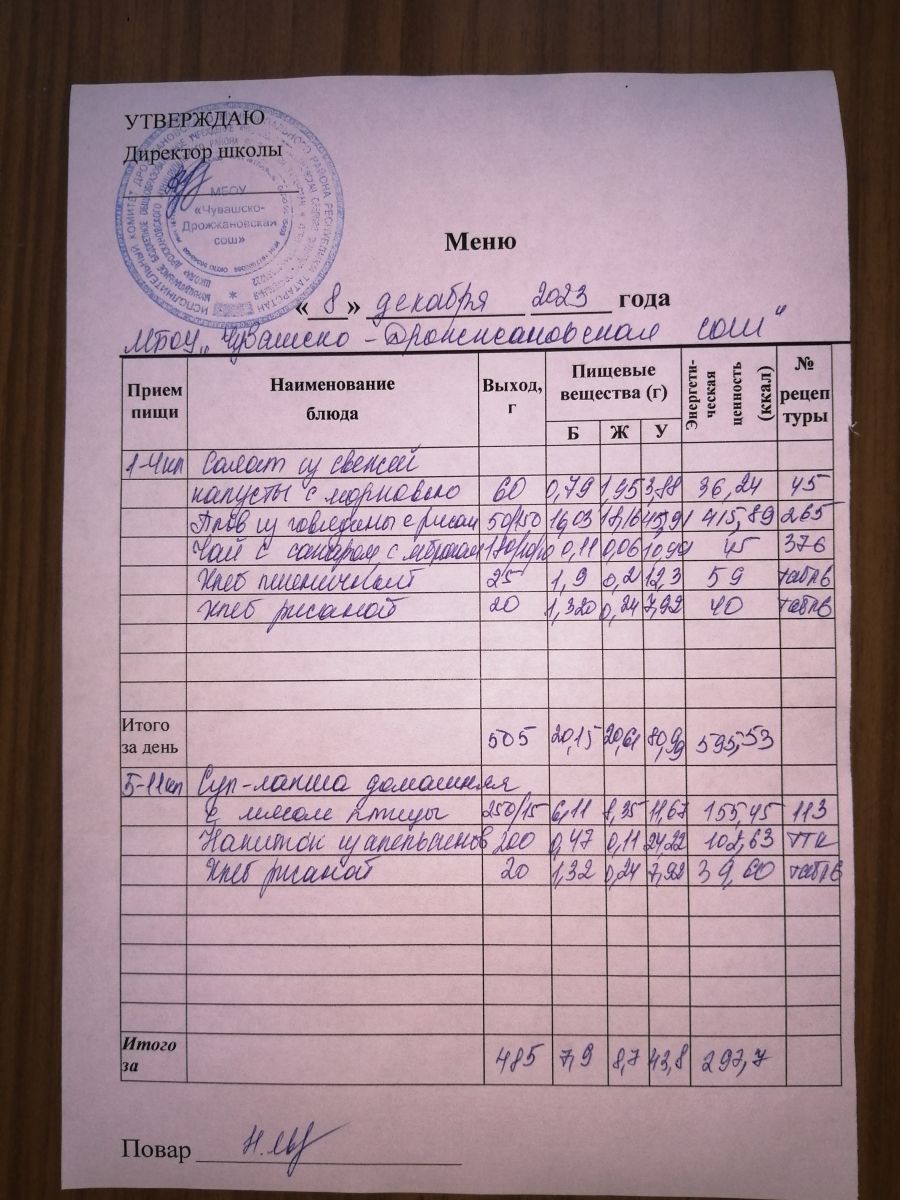 УТВЕРЖДАЮ
Директор школы
МБОУ
«Чувашско-
Дрожжановская
сош»
Меню
« 8 » декабря 2023 года
МБОУ „Чувашско-Дрожжановская сош"
Прием пищи Наименование блюда Выход, г Пищевые вещества (г) Б Ж У Энергети-ческая ценность (ккал) № рецептуры
1-4кл Салат из свежей
капусты с морковью 60 0,79 1,95 3,88 36,24 45
Плов из говядины с рисом 50/150 16,03 18,16 45,91 415,89 265
Чай с сахаром с 0,11 0,06 10,99 45 376
Хлеб пшеничный 25 1,9 0,2 12,3 59 табл6
Хлеб ржаной 20 1,320 0,24 7,92 40 табл6
Итого за день 505 20,15 20,61 80,99 595,53
5-11кл Суп-лапша домашняя
с мясом птицы 250/15 6,11 8,35 11,67 155,45 113
Напиток из апельсинов 200 0,47 0,11 24,22 102,63 ТТК
Хлеб ржаной 20 1,32 0,24 7,92 39,60 табл6
Итого за 485 7,9 8,7 43,8 297,7
Повар